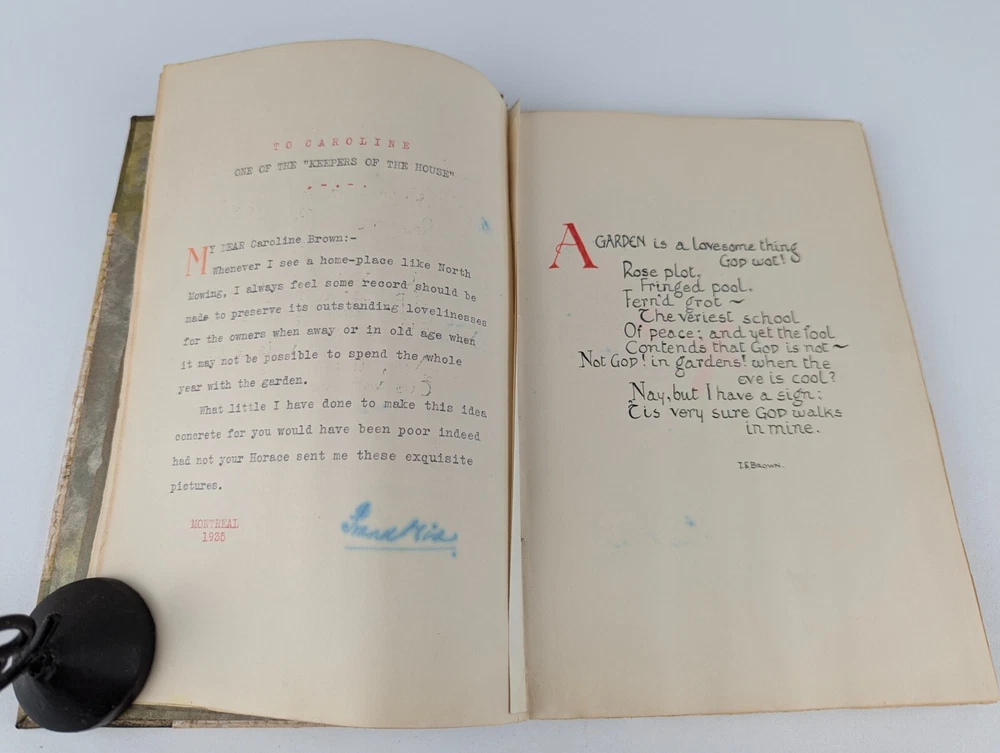 TO CAROLINE
ONE OF THE "KEEPERS OF THE HOUSE"
MY DEAR Caroline Brown:-
Whenever I see a home-place like North
Mowing, I always feel some record should be
made to preserve its outstanding lovelinesses
for the owners when away or in old age when
it may not be possible to spend the whole
year with the garden.
What little I have done to make this idea
concrete for you would have been poor indeed
had not your Horace sent me these exquisite
pictures.
MONTREAL
1935
A GARDEN is a lovesome thing
GOD wot!
Rose plot,
Fringed pool,
Fern'd grot ~
The veriest school
Of peace; and yet the fool
Contends that GOD is not ~
Not GOD! in gardens! when the
eve is cool?
Nay, but I have a sign;
Tis very sure GOD walks
in mine.
T.E BROWN.